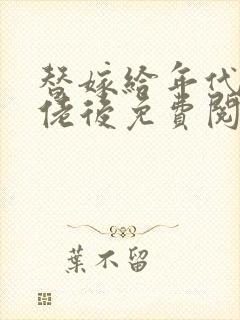 替嫁給年代
佬後免費閱
葉不留